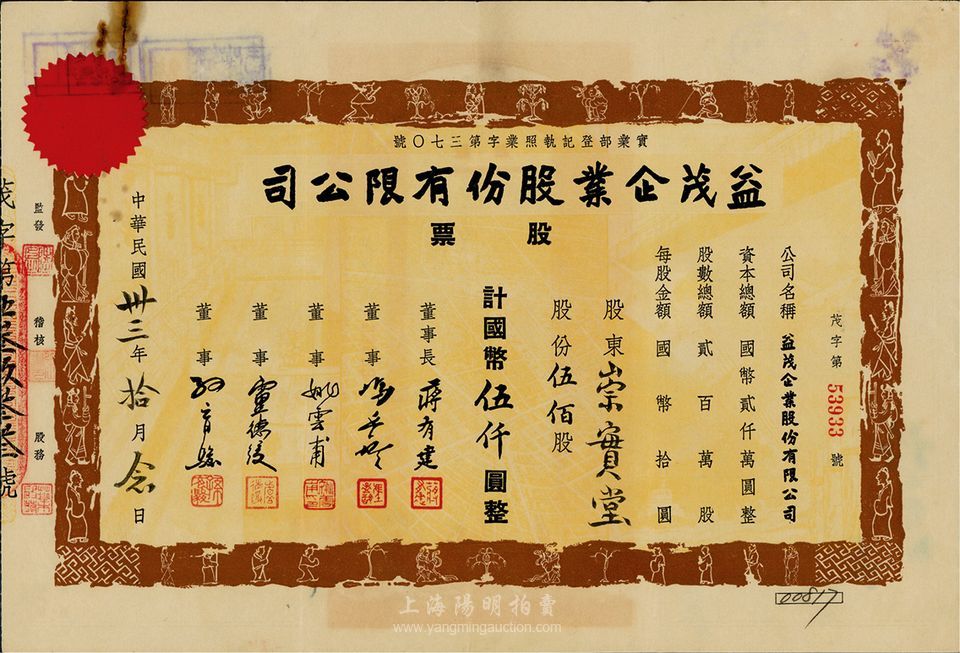 實業部登記執照業字第三七〇號
益茂企業股份有限公司
股票
茂字第53933號
公司名稱 益茂企業股份有限公司
資本總額 國幣貳仟萬圓整
股數總額 貳百萬股
每股金額 國幣拾圓
股東崇實堂
股份伍佰股
計國幣伍仟圓整
董事長 蔣有建
董事
董事 姚雲甫
董事
董事
中華民國卅三年拾月念日
監發
稽核
股務
00817
上海陽明拍賣
www.yangmingauction.com